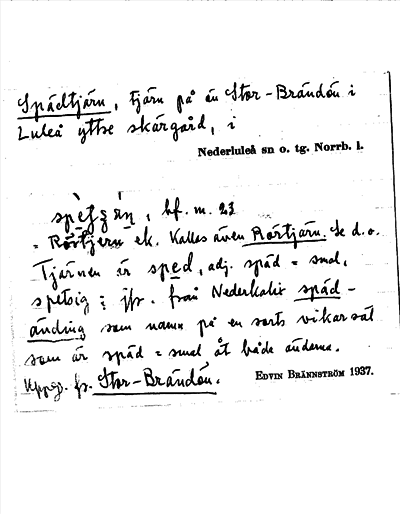 Spädtjärn, tjärn på ön Stor-Brändön i
Luleå yttre skärgård, i
Nederluleå sn o. tg. Norrb. l.
bf. m. 23
= Rörtjern ek. Kallas även Rörtjärn. Se d.o.
Tjärnen är sped, adj. späd = smal,
spetsig; jfr. från Nederkalix späd-
änding som namn på en sorts vikarsäl
som är späd = smal åt båda ändarna.
Uppg. fr. Stor-Brändön.
EDVIN BRÄNNSTRÖM 1937.